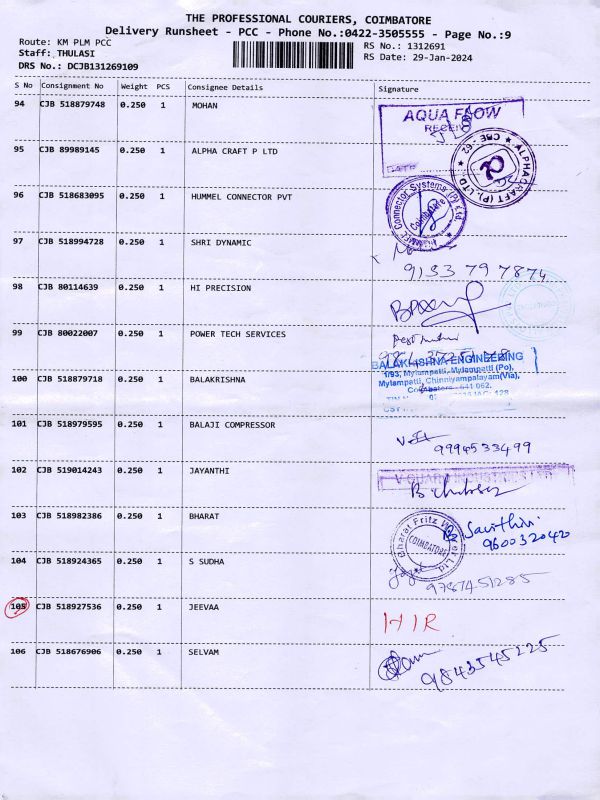 THE PROFESSIONAL COURIERS, COIMBATORE
Delivery Runsheet - PCC - Phone No.:0422-3505555 - Page No.:9
Route: KM PLM PCC
Staff: THULASI
DRS No.: DCJB131269109
RS No.: 1312691
RS Date: 29-Jan-2024
S No Consignment No Weight PCS Consignee Details Signature
94 CJB 518879748 0.250 1 MOHAN
AQUA FLOW
95 CJB 89989145 0.250 1 ALPHA CRAFT P LTD
DATE
ALPHACRAFT (P) LTD
CBE 62
96 CJB 518683095 0.250 1 HUMMEL CONNECTOR PVT
Connector Systems (P) Ltd.
Coimbatore
97 CJB 518994728 0.250 1 SHRI DYNAMIC
9133 797874
98 CJB 80114639 0.250 1 HI PRECISION
99 CJB 80022007 0.250 1 POWER TECH SERVICES
100 CJB 518879718 0.250 1 BALAKRISHNA
BALAKRISHNA ENGINEERING
1/93, Mylampatti, Mylampatti (Po),
Mylampatti, Chinniyampalayam(Via),
Coimbatore - 641 062.
101 CJB 518979595 0.250 1 BALAJI COMPRESSOR
9994533499
102 CJB 519014243 0.250 1 JAYANTHI
V GUARD INDUSTRIES LTD
103 CJB 518982386 0.250 1 BHARAT
Bharat Fritz Werner Ltd.
COIMBATORE
Savithiri
960032042
104 CJB 518924365 0.250 1 S SUDHA
9787451285
105 CJB 518927536 0.250 1 JEEVAA
HIR
106 CJB 518676906 0.250 1 SELVAM
9843545225